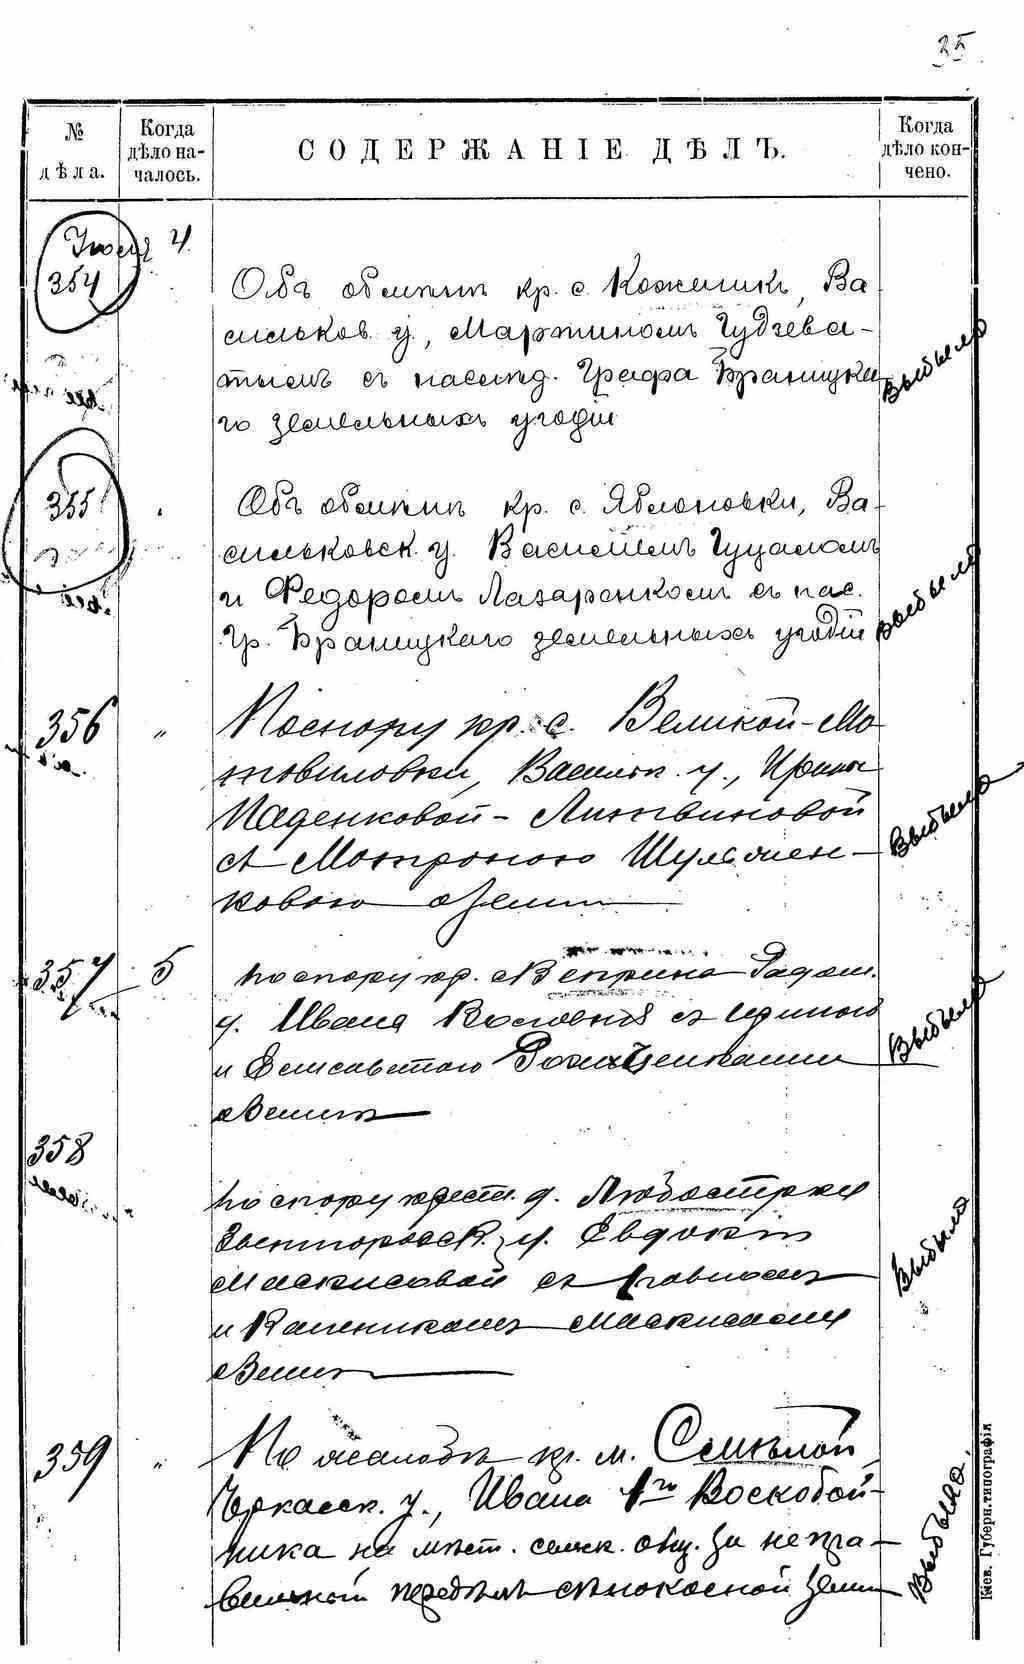 35
№ дѣла.
Когда дѣло началось.
СОДЕРЖАНІЕ ДѢЛЪ.
Когда дѣло кончено.
Іюля 4
354
Объ обмѣнѣ кр. с. Кожаникъ, Ва
сильков. у., Мартиномъ Гудзева-
тымъ съ наслѣд. Графа Браницка
го земельныхъ угодій
Выбыло
355
Объ обмѣнѣ кр. с. Яблоновки, Ва-
сильковск. у. Василіемъ Гуцаломъ
и Федоромъ Лазаренкомъ съ нас.
Гр. Браницкаго земельныхъ угодій
Выбыло
356 "
По спору кр. с. Великой-Мо
товиловки, Васильк. у., Ирины
Паденковой-Литвиновой
съ Мотроною Шульжен-
ковою о земл
Выбыло
357 5
По спору кр. с. Веприна Радом.
у. Ивана съ Ириною
и Елисаветою
о землѣ
Выбыло
358
По спору крест. д.
Звенигородск. у. Евдокіи
съ
и
о землѣ
Выбыло
359 "
По жалобѣ кр. м. Смѣлой,
Черкасск. у., Ивана 1го Воскобой-
ника на мѣст. сельск. общ. за непра-
вильный передѣлъ сѣнокосной земли
Выбыло
Кіев. Губерн. типографія